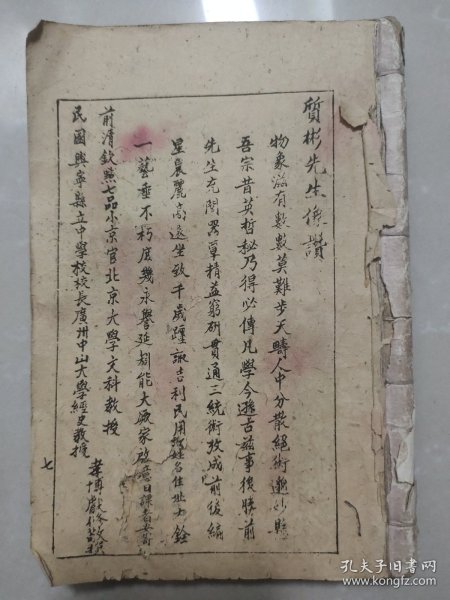 質彬先生像讚
物象滋有數數莫難步天疇人中分散絕術漸
吾宗昔英哲秘乃得必傳凡學今遜古茲事後勝前
先生克闡畧覃精益窮研貫通三統術攷成前後編
星晨麗高遠坐致千歲躔諏吉利民用姓名住世士銓
一藝垂不朽庶幾永譽延創能大厥家啟意日課
前清欽點七品小京官北京大學文科教授
民國興寧縣立中學校校長廣州中山大學經史教授
七
孔夫子旧书网
book.kongfz.com